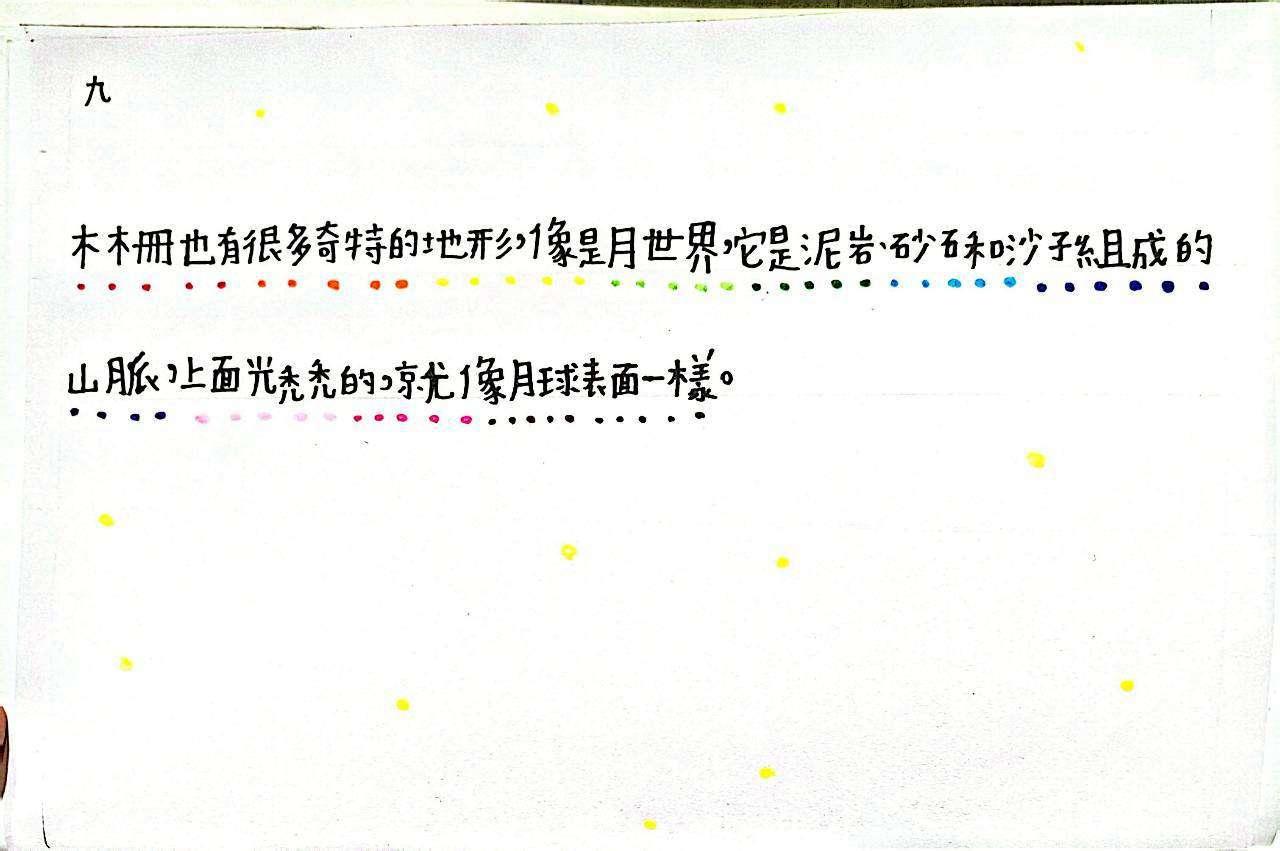 九
木木柵也有很多奇特的地形,像是月世界,它是泥岩、砂石和沙子組成的
山脈,上面光禿禿的,就像月球表面一樣。